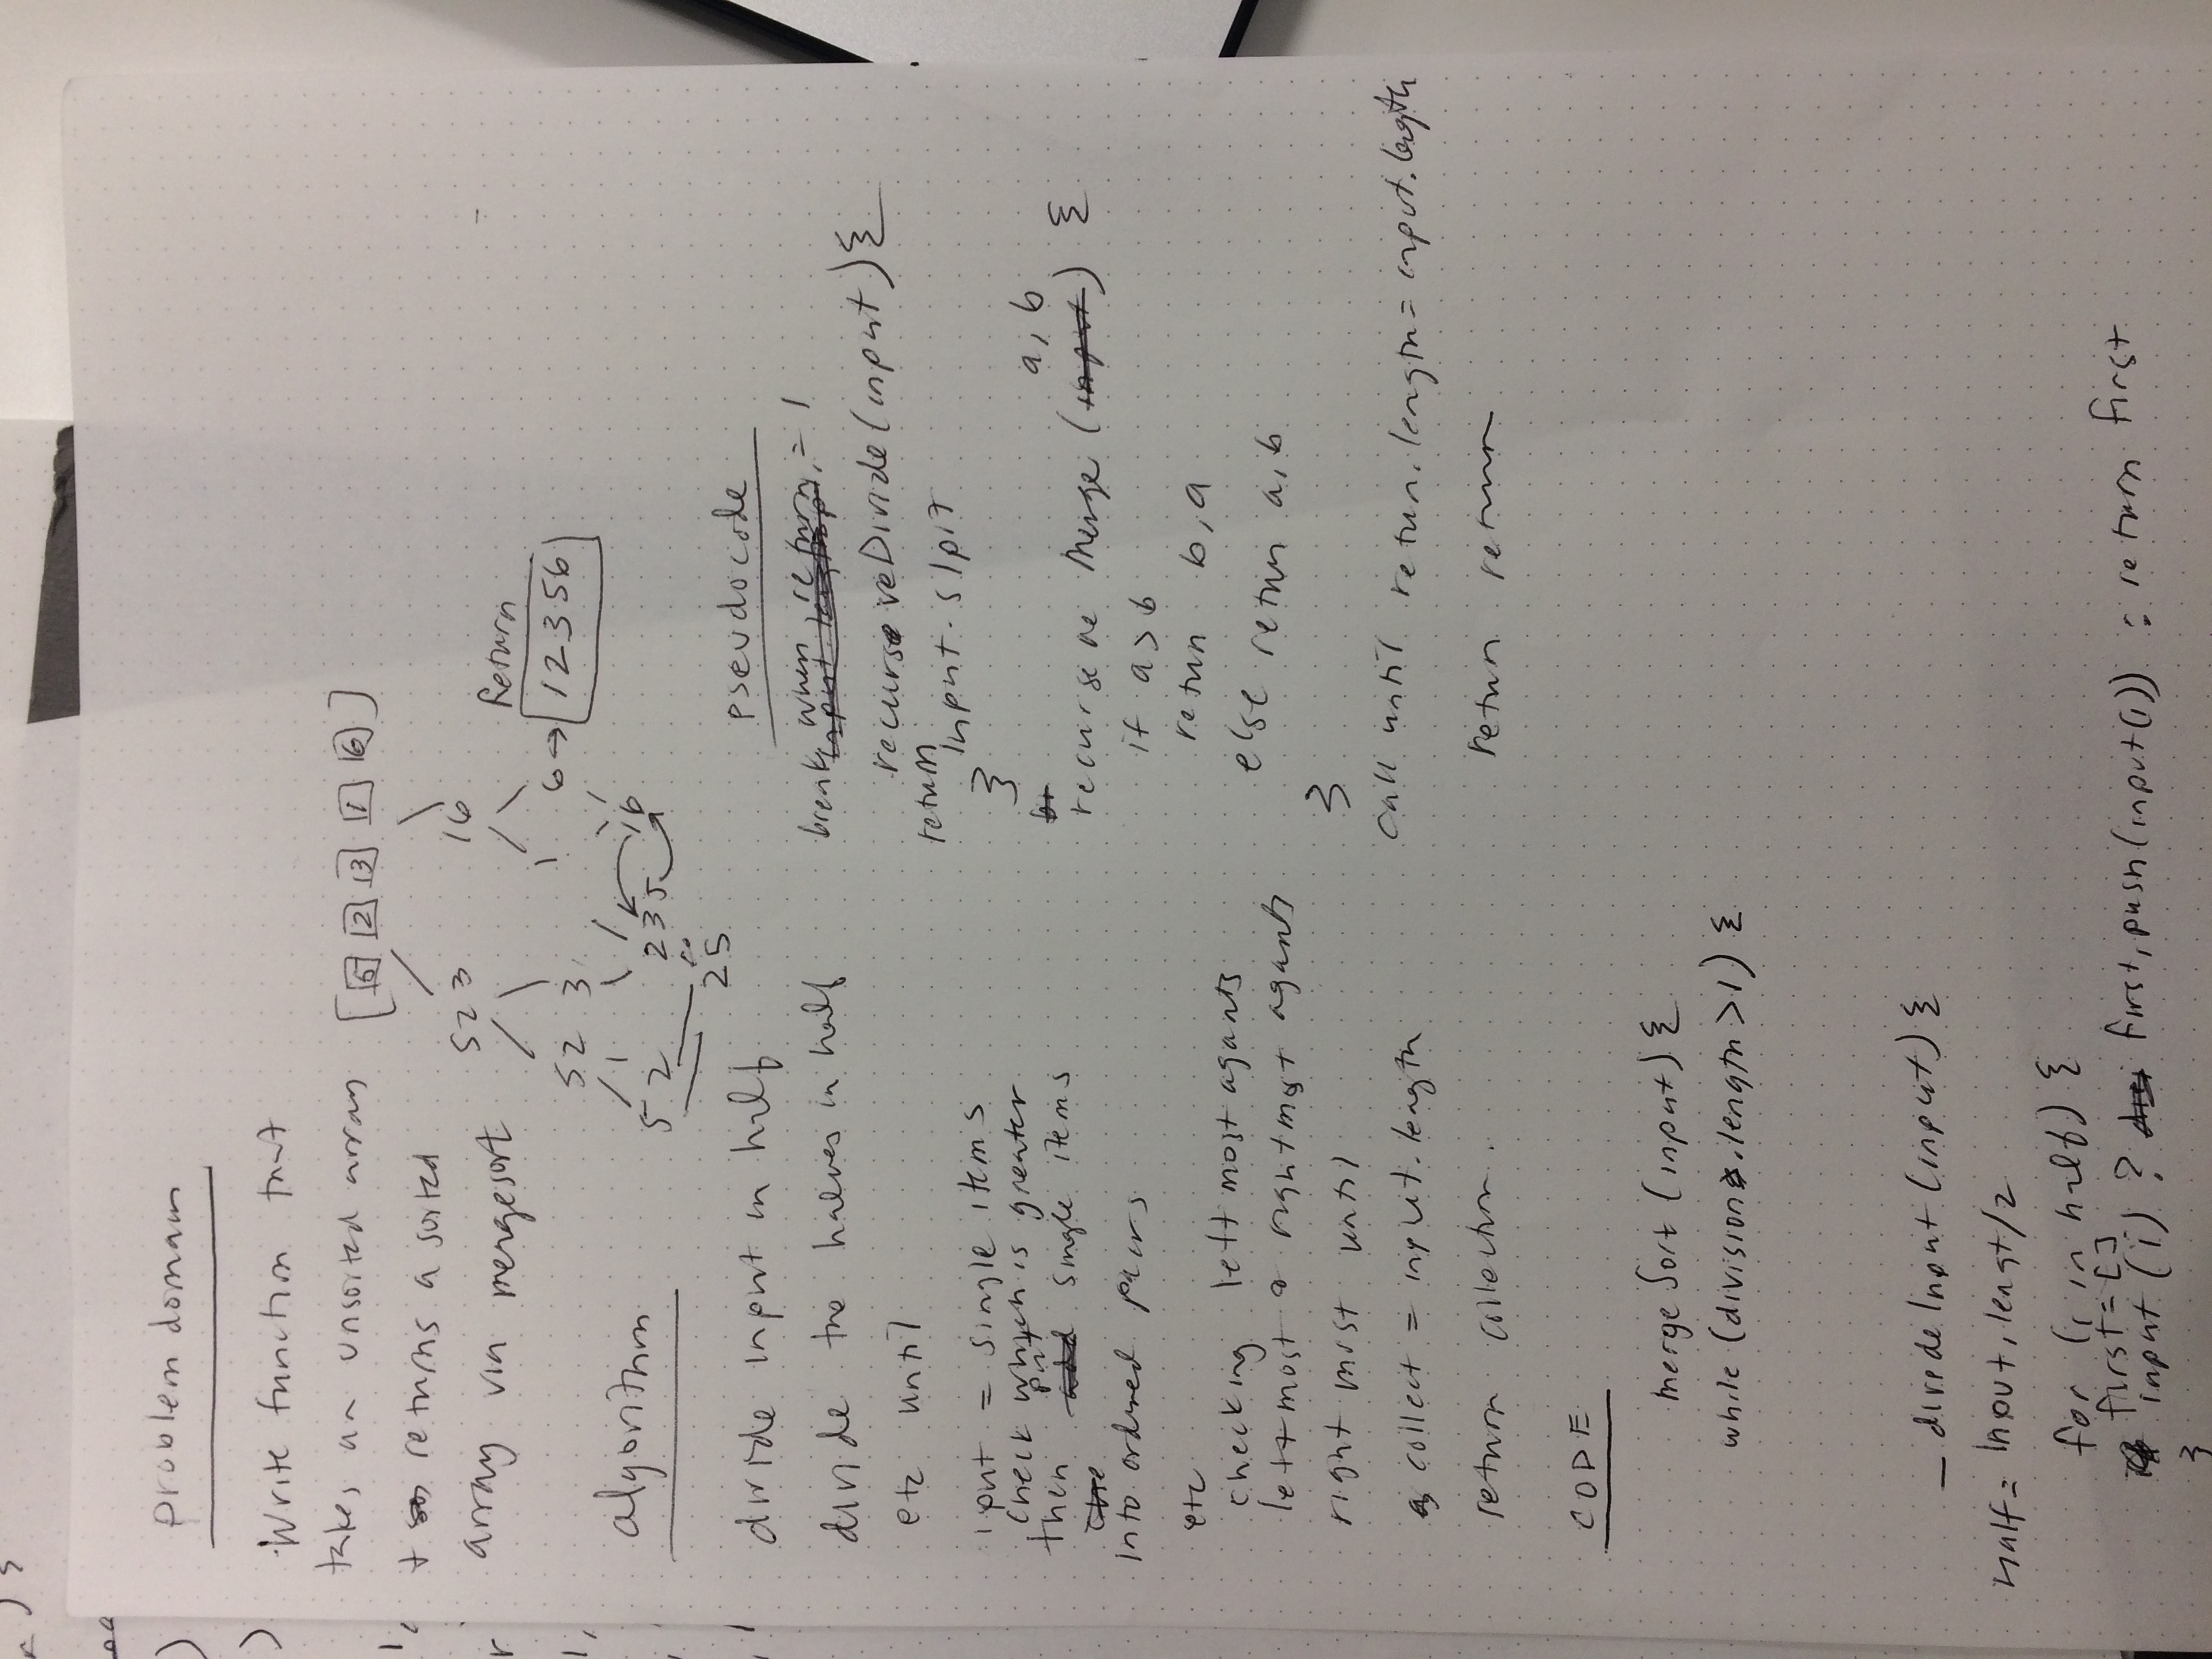 problem domain
Write function that
takes an unsorted array [ 5 2 3 1 6 ]
+ returns a sorted
array via mergesort
5 2 3 1 6
5 2 3 1 6 → Return
1 2 3 5 6
5 2 2 3 5 1 6
2 5
algorithm
divide input in half
divide the halves in half
etc until
iput = single items
check which is greater
then put single items
into ordered pairs
etc
checking left most agants
leftmost & rightmost agants
right most until
collect = input.length
return collection.
pseudocode
break when return = 1
recurseveDivide(input){
return
input.slpit
}
a, b
recurseve Merge (input) {
if a > b
return b, a
else return a, b
}
call until return.length = input.length
return return
CODE
mergeSort (input) {
while (division.length > 1) {
_ divideInput (input) {
half = Input, lengt/2
for (i in half) {
first = []
input (i) ? first, push(input(i)) : return first
}